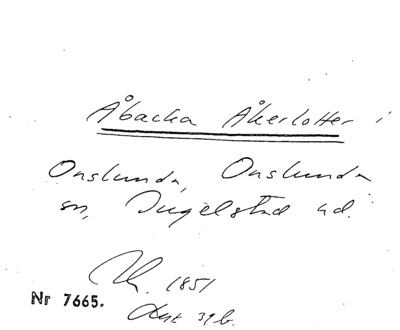 Åbacka Åkerlotter i
Onslunda, Onslunda
sn, Ingelstad hd.
1851
Nr 7665.